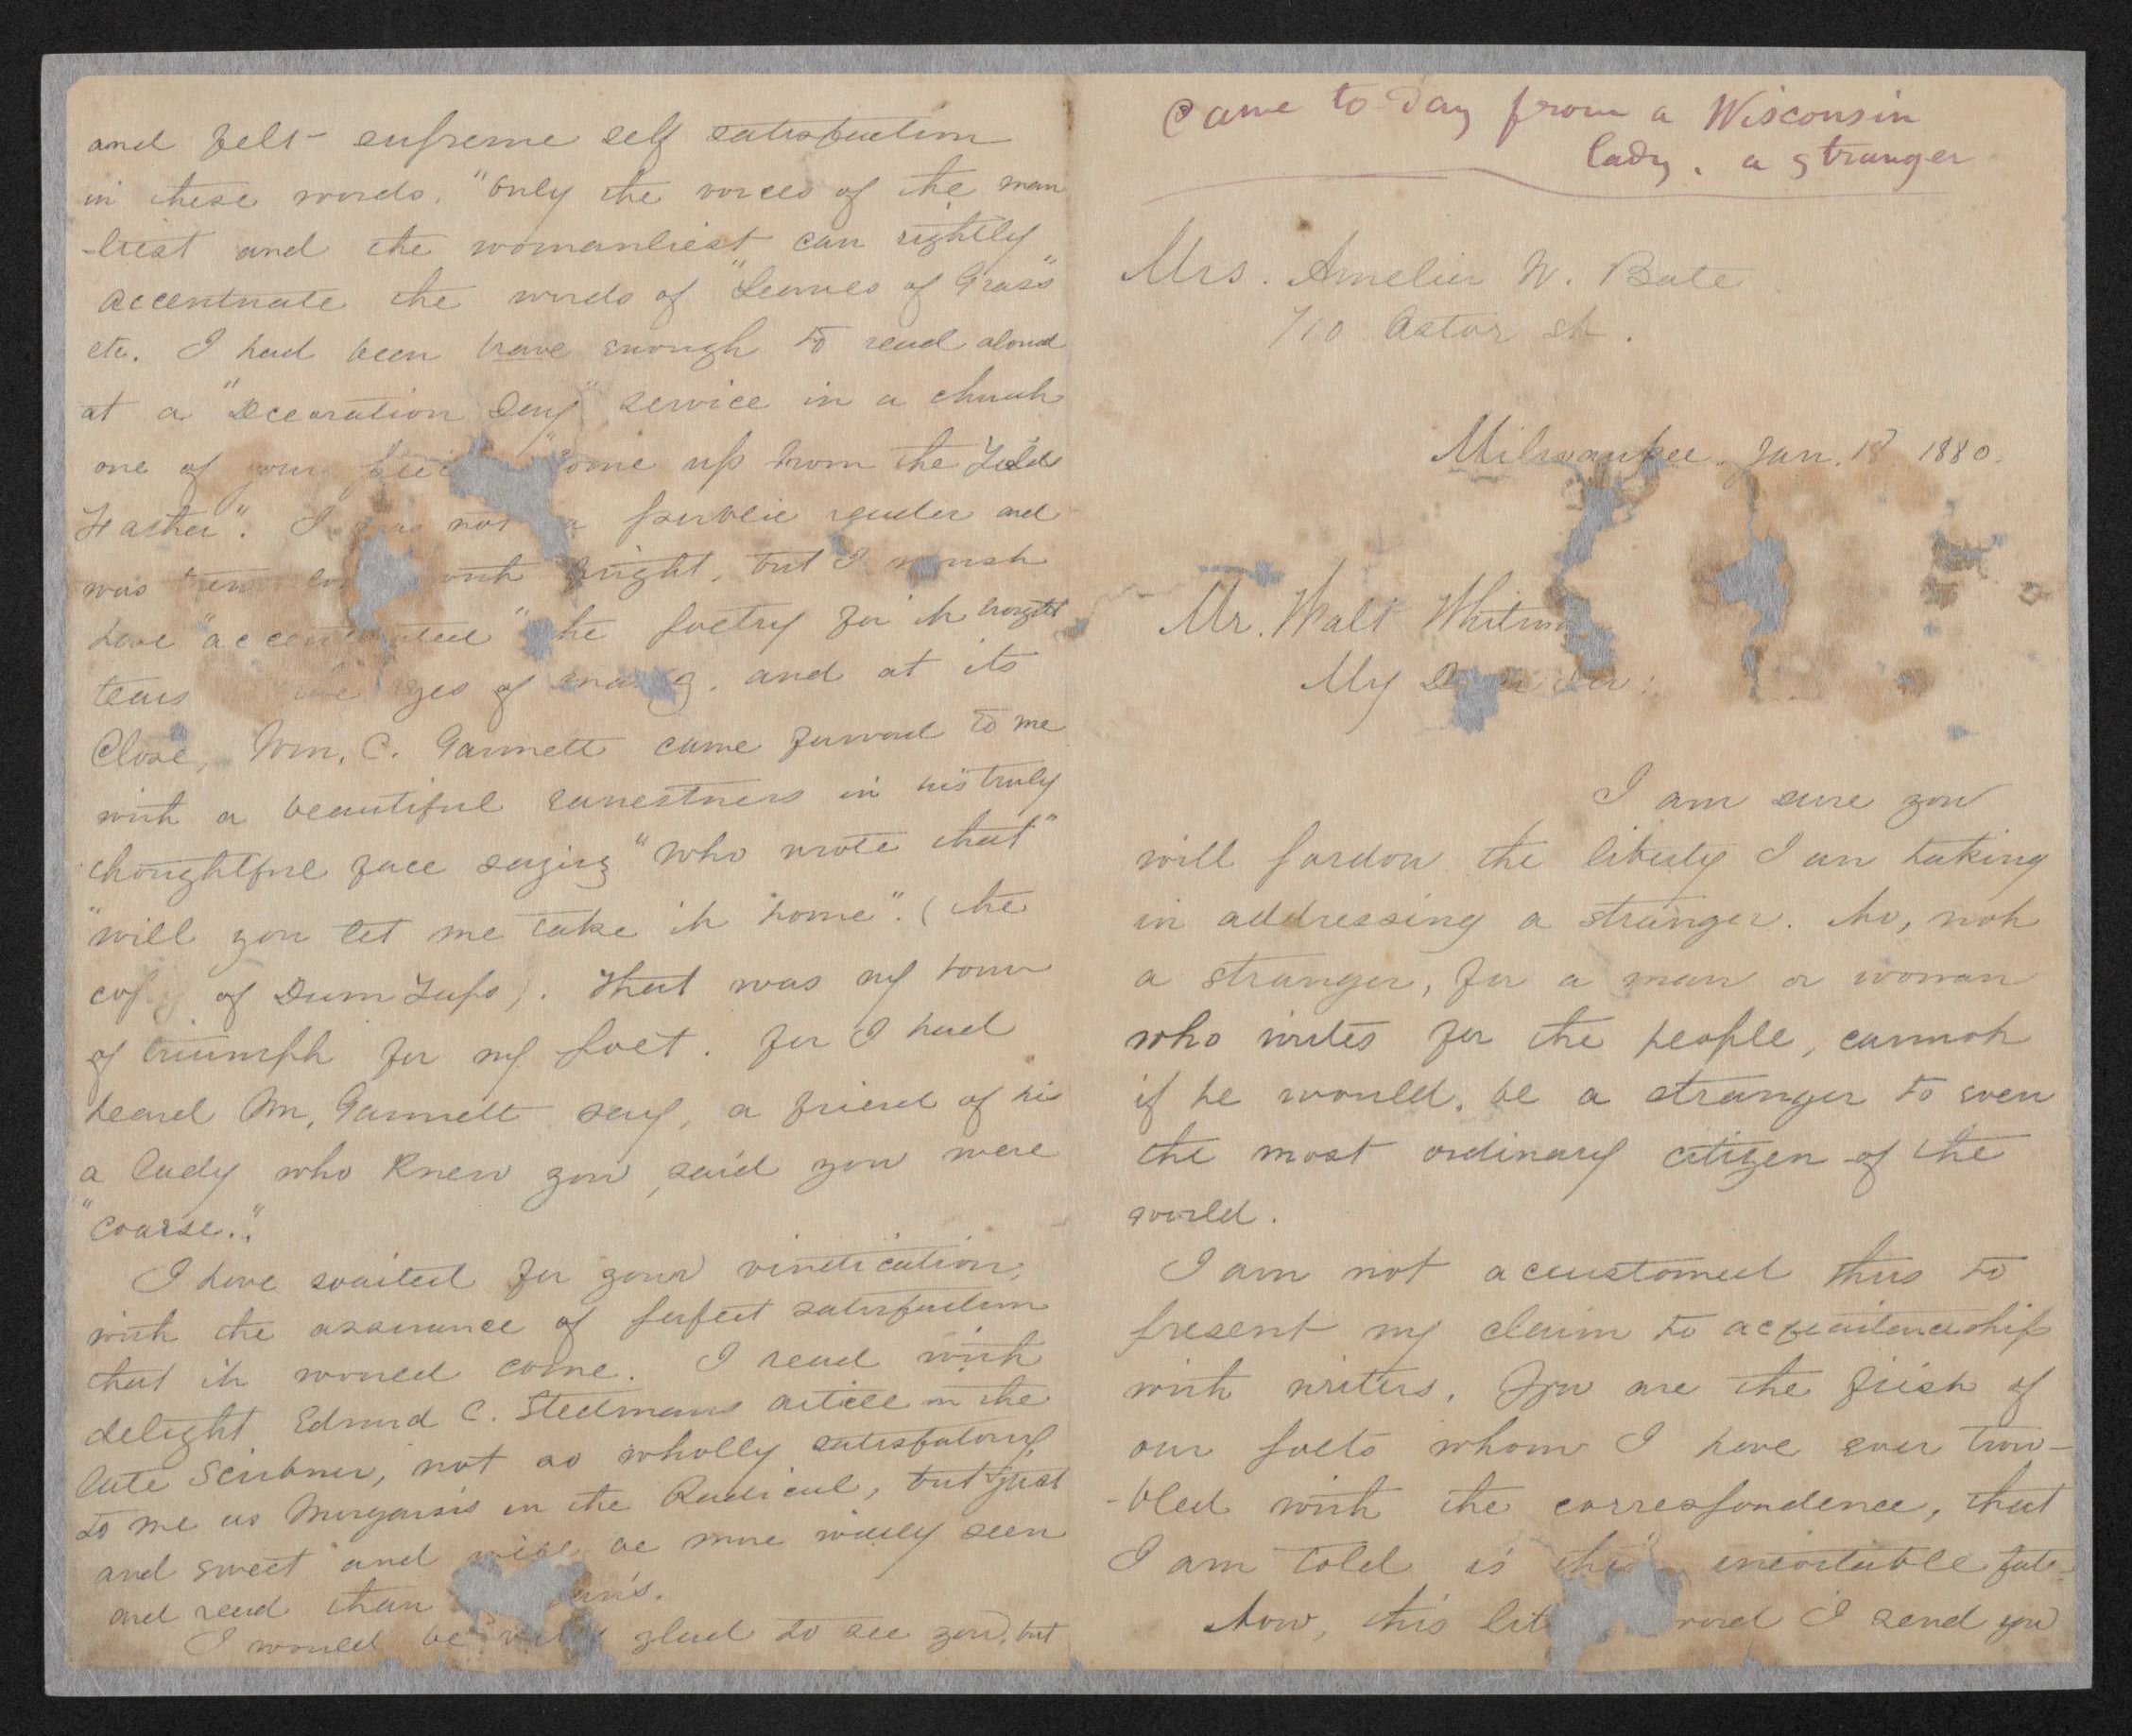 Came to day from a Wisconsin
lady. a stranger
Mrs. Amelia W. Bate
710 Astor st.
Milwaukee. Jan. 18 1880.
Mr. Walt Whitm
My D Sir:
I am sure you
will pardon the liberty I am taking
in addressing a stranger. No, not
a stranger, for a man or woman
who writes for the people, cannot
if he would, be a stranger to even
the most ordinary citizen of the
world.
I am not accustomed thus to
present my claim to acquaintanceship
with writers. You are the first of
our poets whom I have ever trou-
-bled with the correspondence, that
I am told is the inevitable fate.
Now, this lit word I send you
and felt supreme self satisfaction
in these words. "Only the voices of the man
-liest and the womanliest can rightly
accentuate the words of "Leaves of Grass"
etc. I had been brave enough to read aloud
at a "Decoration Day" service in a church
one of your "Come up from the Fields
Father". I was not a public reader and
was with fright, but I must
have "accentuated" the poetry for it brought
tears the eyes of many, and at its
Close, Wm. C. Gannett came forward to me
with a beautiful earnestness in his truly
thoughtful face saying "Who wrote that"
"will you let me take it home". (the
copy of Drum Taps). That was my hour
of triumph for my poet. For I had
heard Mr. Gannett say, a friend of his
a lady who knew you, said you were
"coarse."
I have waited for your vindication,
with the assurance of perfect satisfaction
that it would come. I read with
delight Edmund C. Stedmans article in the
late Scribner, not so wholly satisfactory
to me as Morgan's in the Radical, but just
and sweet and will be more widely seen
and read than an's.
I would be very glad to see you, but